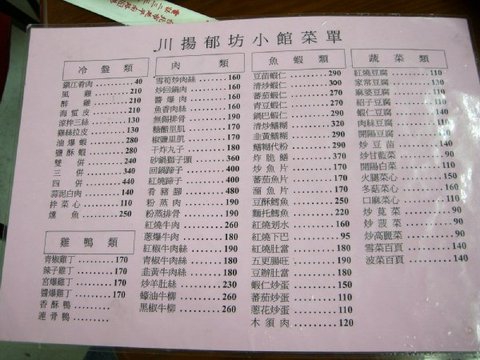 川揚郁坊小館菜單
冷盤類
鎮江肴肉 40
風雞 210
醉雞 210
海蜇皮 210
涼拌三絲 130
雞絲拉皮 130
油爆蝦 280
鹽酥蝦 280
雙併
三併
四併
蒜泥白肉
拌菜心
燻魚
雞鴨類
青椒雞丁 170
辣子雞丁 170
宮爆雞丁 170
醬爆雞丁 170
香酥鴨
肉類
雪筍炒肉絲 160
炒回鍋肉 160
醬爆肉 160
魚香肉絲 160
無錫排骨 190
糖醋里肌 170
椒鹽里肌 170
干炸丸子 180
砂鍋獅子頭 360
回鍋蹄子 400
紅燒蹄子 400
肴豬腳 480
粉蒸肉 190
粉蒸排骨 190
紅燒牛肉 260
蔥爆牛肉 190
紅椒牛肉絲 190
青椒牛肉絲 190
韭黃牛肉絲 190
炒羊肚絲 230
蠔油牛柳 260
黑椒牛柳 260
魚蝦類
豆苗蝦仁 290
清炒蝦仁 270
蕃茄蝦仁 270
青豆蝦仁 270
鍋巴蝦仁 290
清炒鱔糊 320
韭黃鱔糊 320
鱔糊代粉 320
炸脆鱔 320
炒魚片 170
蕃茄魚片 170
溜魚片 170
豆酥鱈魚 250
麵托鱈魚 220
紅燒划水 190
紅燒下巴 95
紅燒肚當 190
五更腸旺 190
豆瓣肚當 190
蝦仁炒蛋 150
蕃茄炒蛋 110
蔥花炒蛋 110
木須肉 120
蔬菜類
紅燒豆腐 110
家常豆腐 110
麻婆豆腐 110
紹子豆腐 110
蝦仁豆腐 190
肉絲豆腐 110
開陽豆腐 110
炒豆苗 140
炒甘藍菜 90
開陽白菜 110
火腿菜心 150
冬菇菜心 160
口麻菜心 110
炒莧菜 90
炒菠菜 90
炒高麗菜 90
雪菜百頁 140
菠菜百頁 140